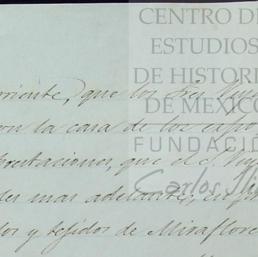 CENTRO DE
ESTUDIOS
DE HISTORI
DE MÉXICO
FUNDACIÓ
Carlos Sli
orriente, que los Sres
con la casa de los
prestaciones, que el S.
des mas adelante,
dos y tejidos de Miraflore